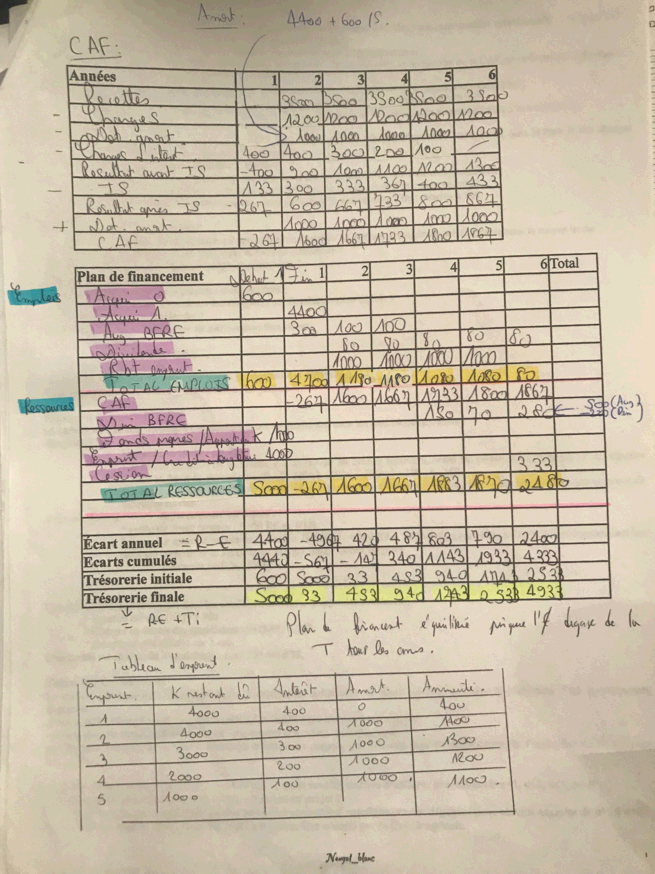 Amort: 4400 + 600 /5.
CAF:
Années 1 2 3 4 5 6
Recettes 3500 3500 3500 3500 3500
- Charges 1200 1200 1200 1200 1200
- Dot. amort. 1000 1000 1000 1000 1000
- Charges d'intérêt 400 400 300 200 100 -
Résultat avant IS -400 900 1000 1100 1200 1300
- IS 133 300 333 367 400 433
Résultat après IS -267 600 667 733 800 867
+ Dot. amrt. 1000 1000 1000 1000 1000
CAF -267 1600 1667 1733 1800 1867
Plan de financement Début 1 Fin 1 2 3 4 5 6 Total
Emplois
Acqui 0 600
Acqui 1. 4400
Aug BFRE 300 100 100
Dividende. 80 80 80 80 80
Rbt emprt. 1000 1000 1000 1000
TOTAL EMPLOIS 600 4700 1180 1180 1080 1080 80
Ressources
CAF -267 1600 1667 1733 1800 1867
Dimi BFRE 150 70 280 ← 500 (Aug)
(Dim)
Fonds propres / Apports K 1000
Emprunt / 4000
Cession 333
TOTAL RESSOURCES 5000 -267 1600 1667 1883 1870 2480
Écart annuel = R-E 4400 -4967 420 487 803 790 2400
Ecarts cumulés 4440 -567 -147 340 1143 1933 4333
Trésorerie initiale 600 5000 33 453 940 1743 2533
Trésorerie finale 5000 33 453 940 1743 2533 4933
= RE + Ti
Plan de financent équilibré puisque l'E dégage de la
T tous les ans.
Tableau d'emprunt.
Emprunt. K restant dû Intérêt Amrt. Annuité.
1 4000 400 0 400
2 4000 400 1000 1400
3 3000 300 1000 1300
4 2000 200 1000 1200
5 1000 100 1000. 1100.
Nougat_blanc